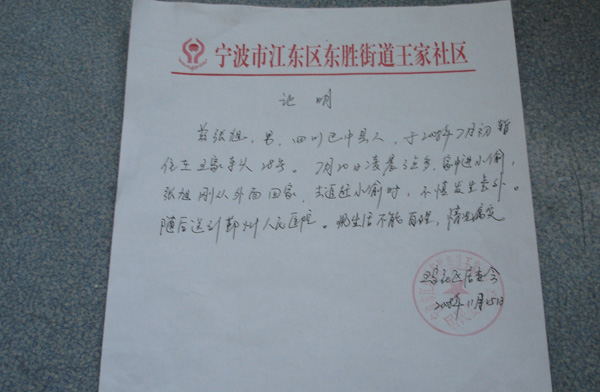 宁波市江东区东胜街道王家社区
证明
兹张旭,男,四川巴中县人,于2008年7月初暂
住在王家弄头28号。7月20日凌晨3点多,家中进小偷,
张旭刚从外面回家,去追赶小偷时,不慎发生意外。
随后送到鄞州人民医院。现生活不能自理,情况属实
王家社区居委会
2008年11月15日